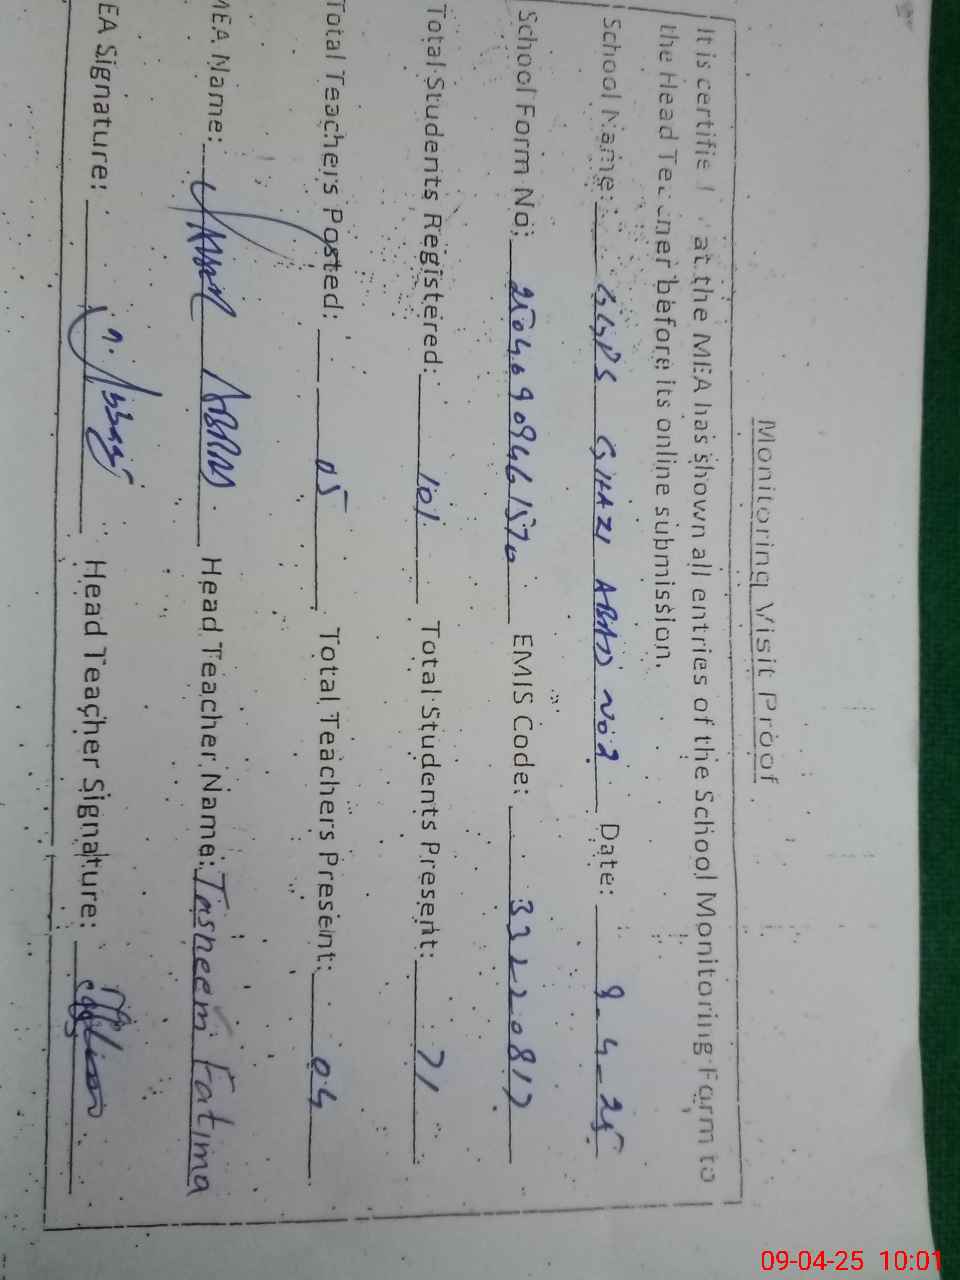 Monitoring Visit Proof
It is certified that the MEA has shown all entries of the School Monitoring Form to
the Head Teacher before its online submission.
School Name: GGPS GHAZI ABAD NO2 Date: 9-4-25
School Form No: EMIS Code: 33220817
Total Students Registered: 101 Total Students Present: 71
Total Teachers Posted: 05 Total Teachers Present: 04
MEA Name: ABBAS Head Teacher Name: Tasneem Fatima
EA Signature: Head Teacher Signature:
09-04-25 10:01